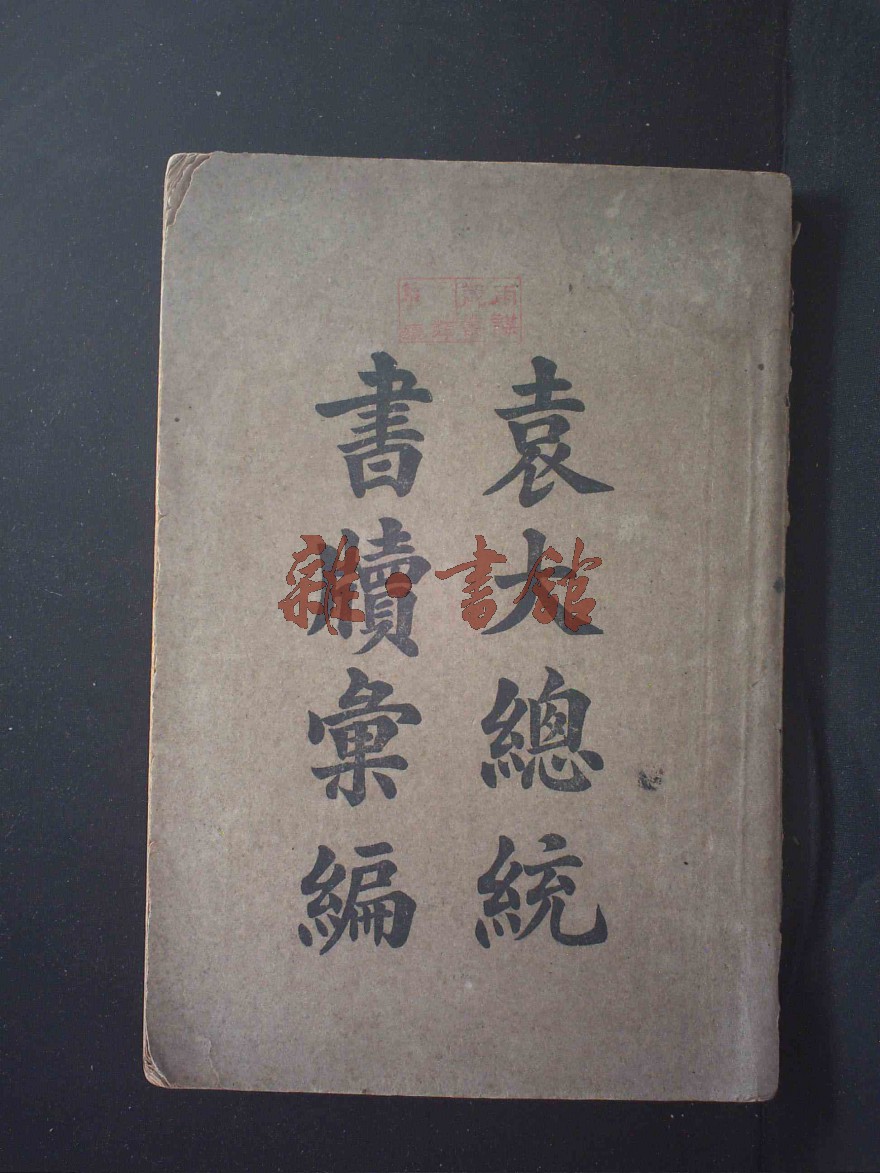 袁大總統
書牘彙編
雜·書館